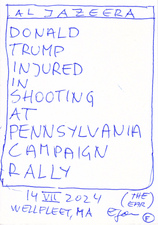 AL JAZEERA
DONALD
TRUMP
INJURED
IN
SHOOTING
AT
PENNSYLVANIA
CAMPAIGN
RALLY
14 VII 2024
(THE
EPR)
WELLFLEET, MA